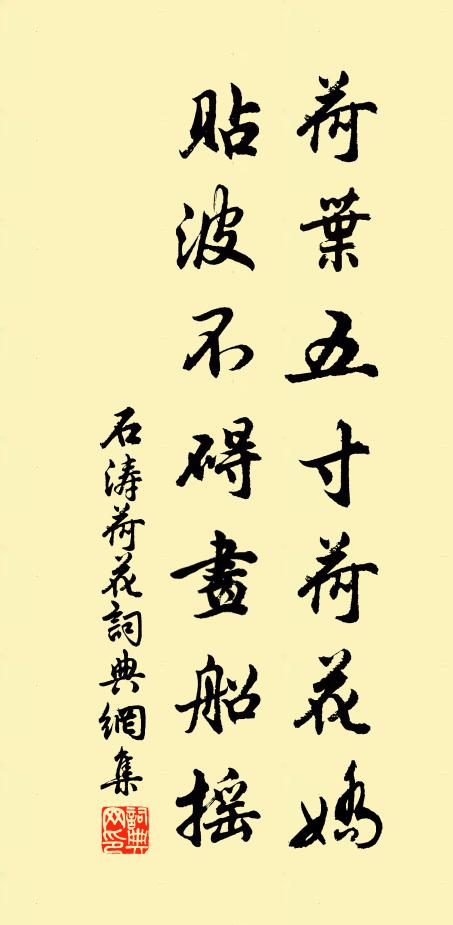 荷葉五寸荷花嬌
貼波不碍畫船摇
石涛荷花詞典網集
詞典網印